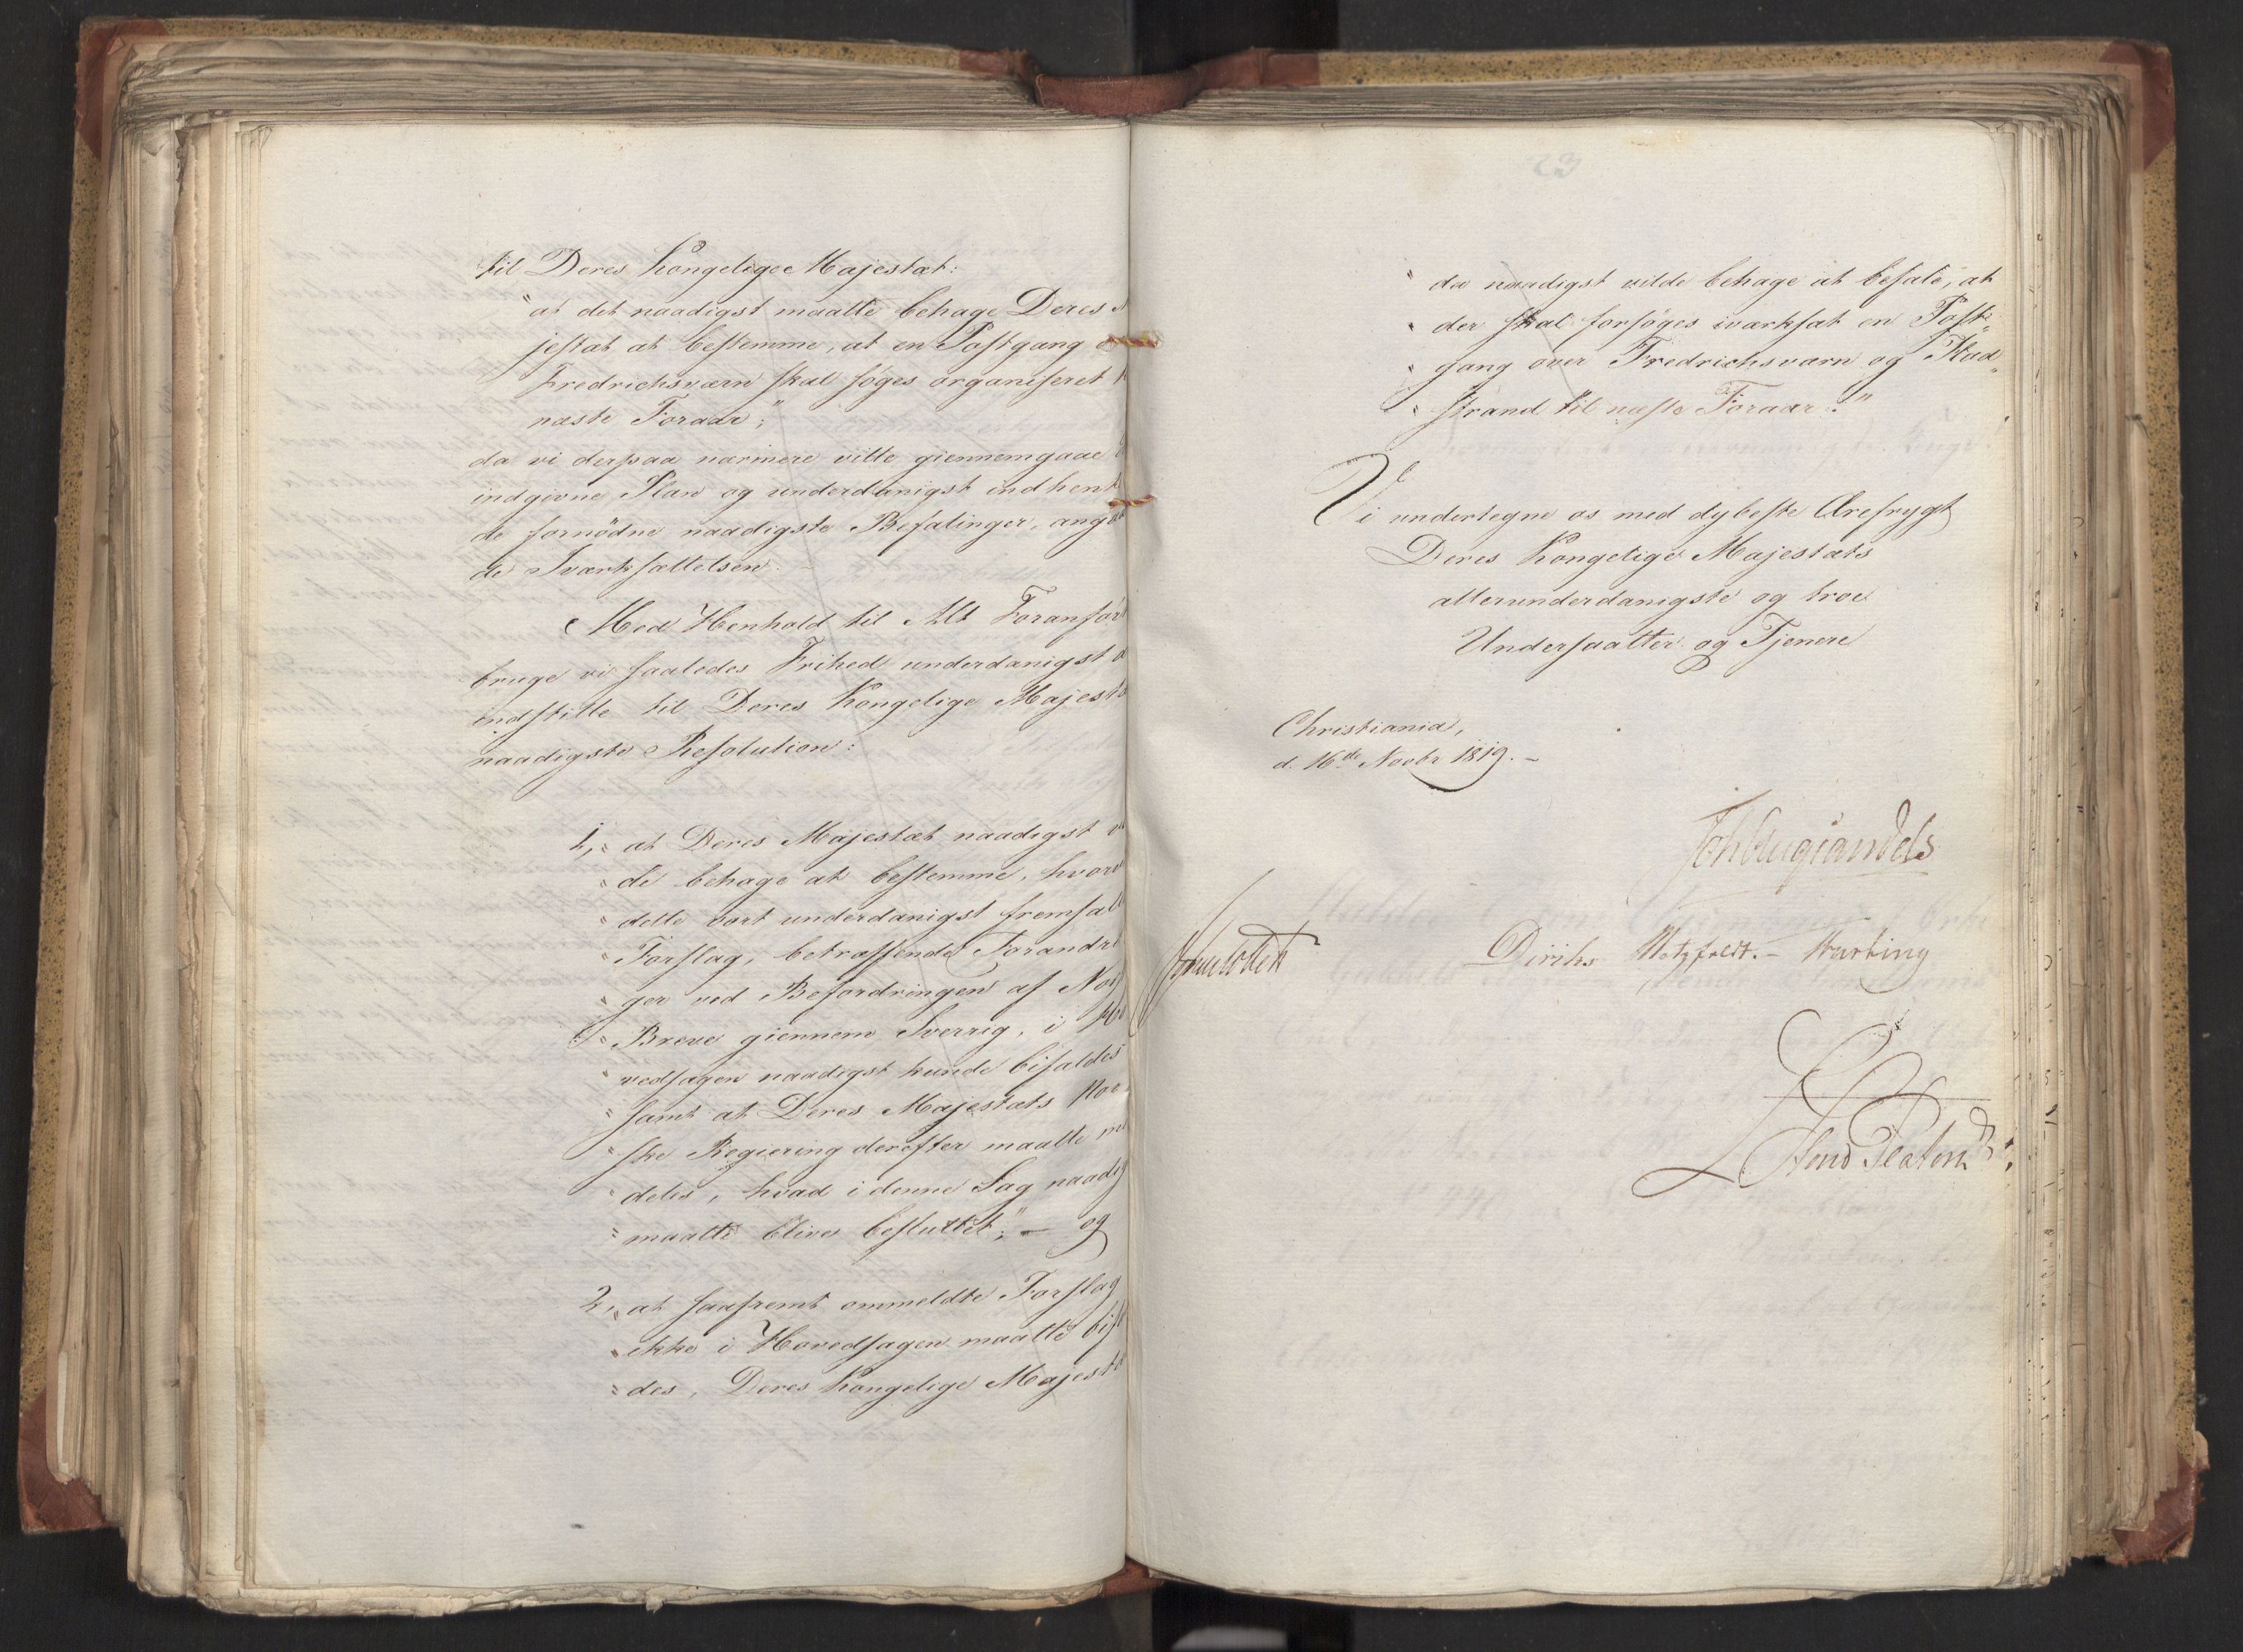 til Deres Kongelige Majestæt:
"at det naadigst maatte behage Deres
jestæt at bestemme, at en Postgang
Fredrichsværn skal søges organiseret
næste Foraar;"
da vi derpaa nærmere ville giennemgaae
indgivne Plan og underdanigst indhent
de fornødne naadigste Befalinger, angaa
de Iværksættelsen.
Med Henhold til Alt Foranfør
bruge vi saaledes Frihed underdanigst
indstille til Deres Kongelige Majestæ
naadigste Resolution:
1, "at Deres Majestæt naadigst
"de behage at bestemme, hvor
"dette vort underdanigst fremsat
"Forslag, betræffende Forandri
"ger ved Befordringen af Nor
"Breve giennem Sverrig, i Ho
"vedsagen naadigst kunde bifaldes
"samt at Deres Majestæts Nor
"ske Regiering derefter maatte me
"deles, hvad i denne Sag naadig
"maatte blive besluttet;" – og
2, "at saafremt ommeldte Forslag
"ikke i Hovedsagen maatte bif
"des, Deres Kongelige Majestæ
23
"da naadigst vilde behage at befale, at
"der skal forsøges iværksat en Post-
"gang over Fredrichsværn og
"strand til næste Foraar."
Vi undertegne os med dybeste Ærefrygt
Deres Kongelige Majestæts
allerunderdanigste og troe
Undersaatter og Tjenere
Christiania,
d. 16de Novbr 1819. –
Joh Aug Sandels
Sommerfeldt
Diriks Motzfeldt. – Krebting